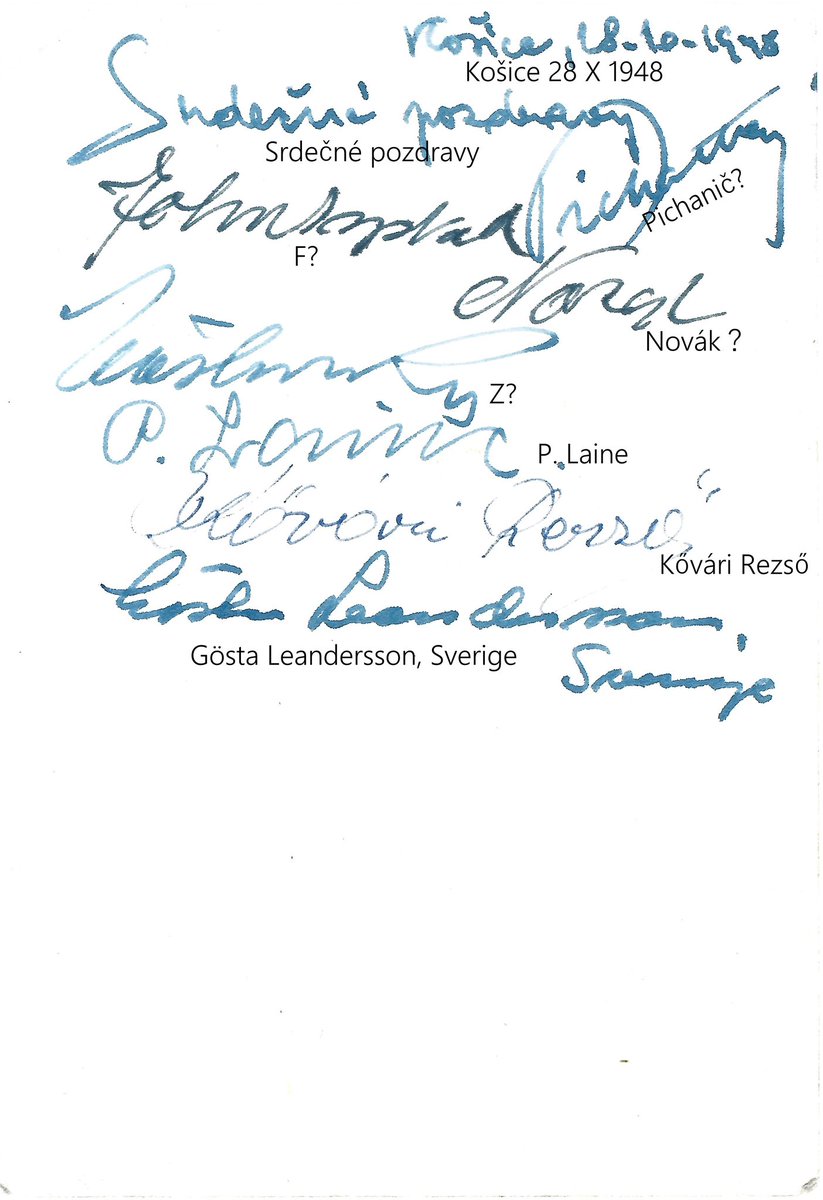 Košice, 28-10-1948
Košice 28 X 1948
Srdečné pozdravy
Srdečné pozdravy
Pichanič?
F?
Novák ?
Z?
P. Laine
P. Laine
Kővári Rezső
Kővári Rezső
Gösta Leandersson,
Gösta Leandersson, Sverige
Sverige